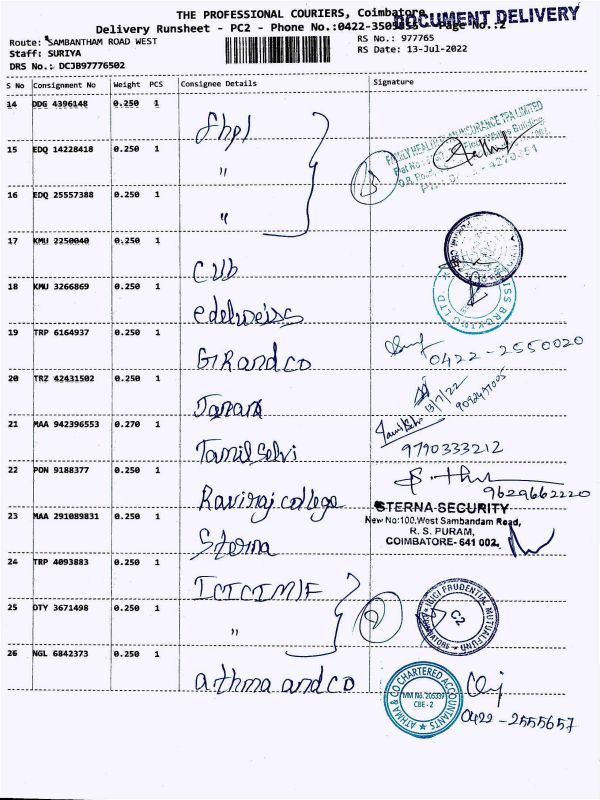 THE PROFESSIONAL COURIERS, Coimbatore
DOCUMENT DELIVERY
Delivery Runsheet - PC2 - Phone No.:0422-3505055 Page No.:2
Route: SAMBANTHAM ROAD WEST
RS No.: 977765
Staff: SURIYA
RS Date: 13-Jul-2022
DRS No.: DCJB97776502
S No Consignment No Weight PCS Consignee Details Signature
14 DDG 4396148 0.250 1
fhpl
15 EDQ 14228418 0.250 1
"
FAMILY HEALTH PLAN INSURANCE TPA LIMITED
16 EDQ 25557388 0.250 1
"
17 KMU 2250040 0.250 1
CUB
18 KMU 3266869 0.250 1
edelweiss
19 TRP 6164937 0.250 1
GIRandco
0422-2550020
20 TRZ 42431502 0.250 1
Janani
13/7/22
21 MAA 942396553 0.270 1
Tamil Selvi
Tamil Selvi
9790333212
22 PON 9188377 0.250 1
Raviraj college
9629662220
23 MAA 291089831 0.250 1
Sterna
STERNA-SECURITY
New No:100,West Sambandam Road,
R. S. PURAM,
COIMBATORE- 641 002.
24 TRP 4093883 0.250 1
ICICIMIF
25 DTY 3671498 0.250 1
"
ICICI PRUDENTIAL MUTUAL FUND
COIMBATORE
26 NGL 6842373 0.250 1
athma and co
ATHMA & CO CHARTERED ACCOUNTANTS
MM No. 205339
CBE - 2
0422-2555657